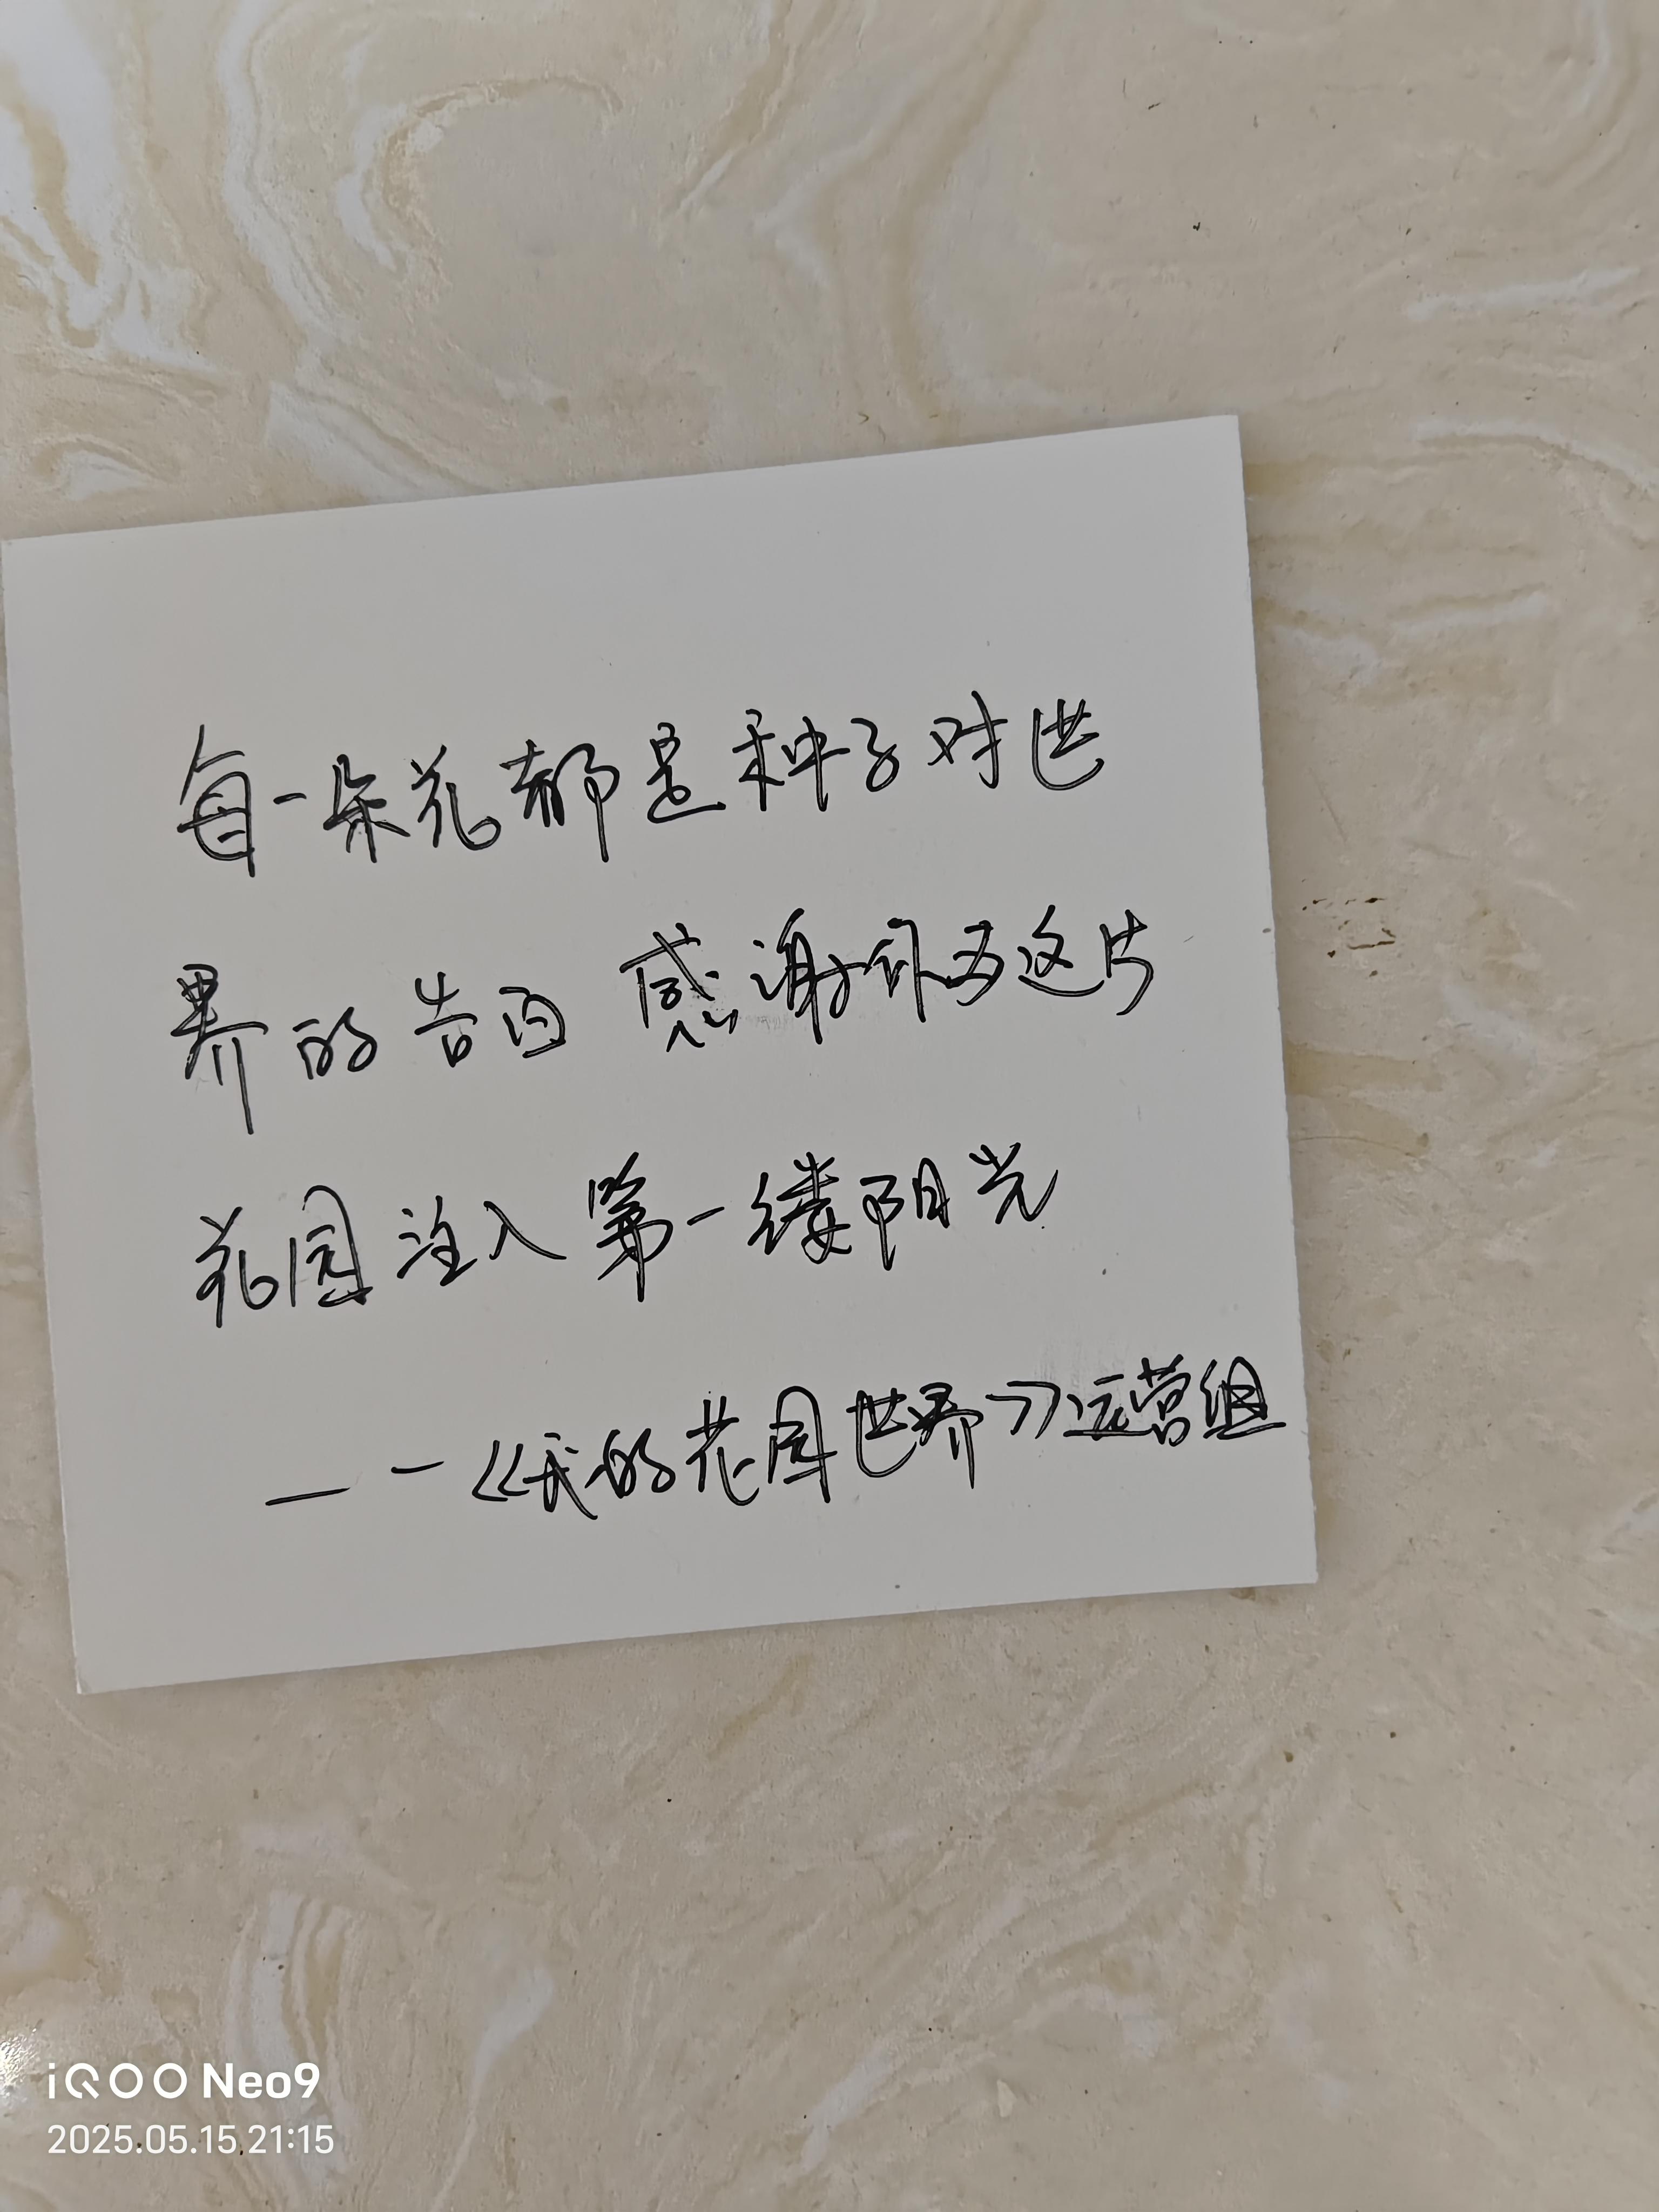 每一朵花都是种子对世
界的告白 感谢你为这片
花园注入第一缕阳光
——《我的花园世界》运营组
iQOO Neo9
2025.05.15 21:15